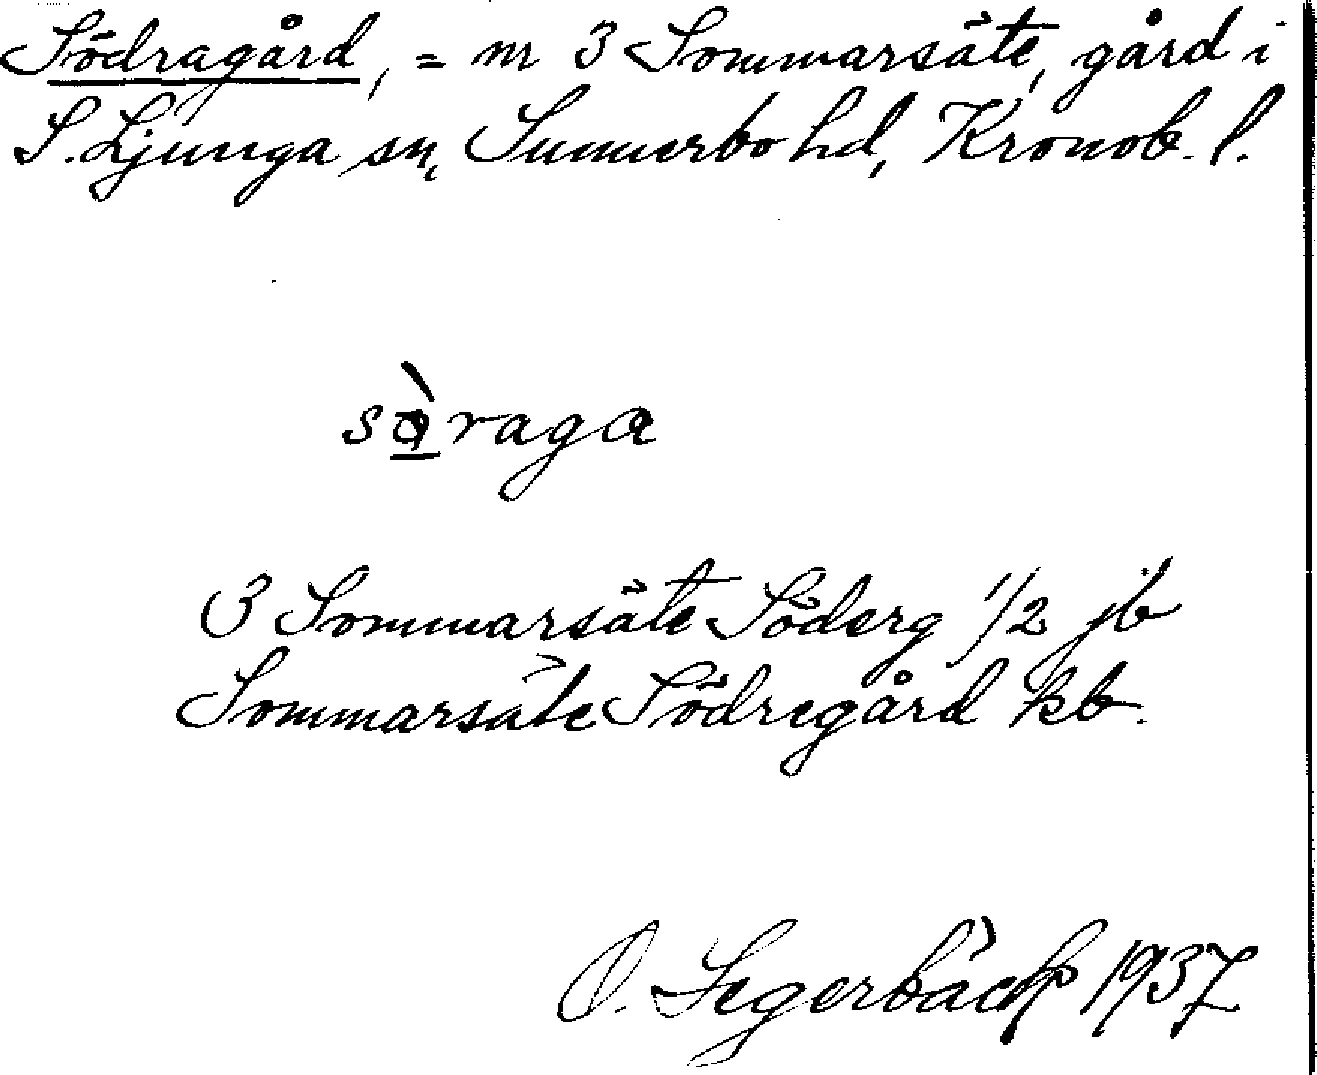 Södragård, = nr 3 Sommarsäte, gård i
S. Ljunga sn, Sunnerbo hd, Kronob. l.
sø̱̀raga
3 Sommarsäte Söderg 1/2 jb
Sommarsäte Södregård kb.
O. Segerbäck 1937